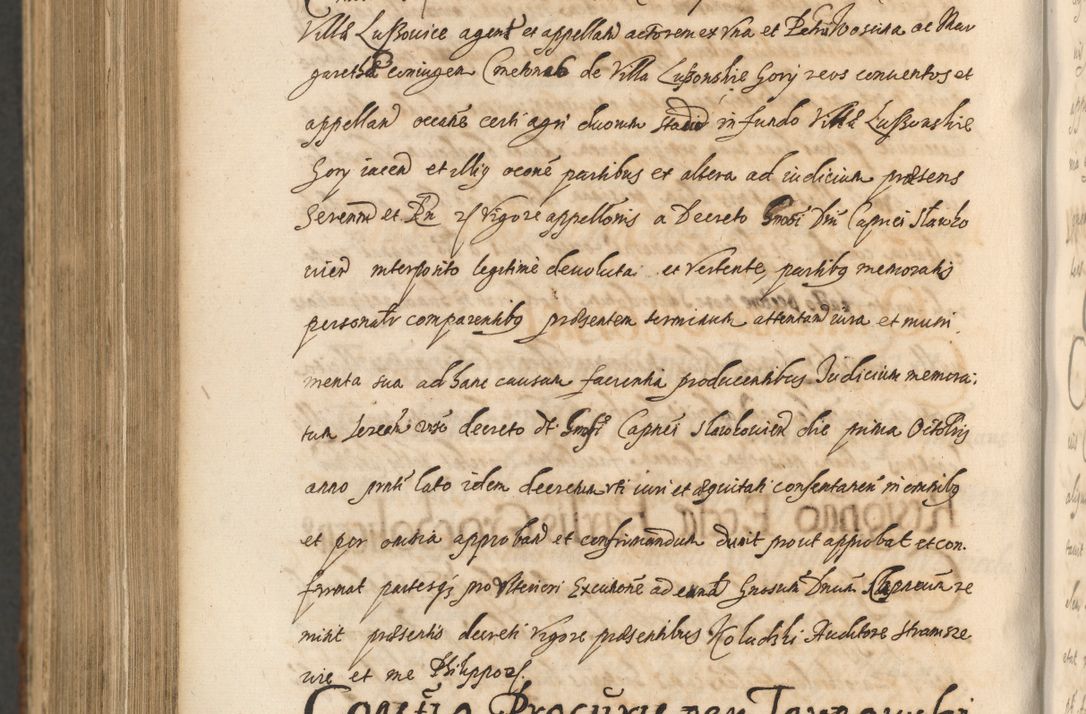 Villa Lussowice agent et appellan actorem ex una et Petru Wosina ac Mar
garetha coniugem de Villa Lussowskie Gory reos conventos et
appellan occone certi agri duorum stadio in fundo Villa Lussowskie
Gory iacen et illiq occone partibus ex altera ad iudicium præsens
Serenm et Rn vigore appellonis a Decreto Gnosi Dni Capnei Slawko
vien interposito legitime devoluta et vertente, partibq memoratis
personalr comparentibq præsentem terminum attentan iura et muni
menta sua ad hanc causam facientia producentibus Iudicium memora-
tum decreto Gnosi Capnei Slawkovien die prima Octobris
anno prnti lato idem decretum uti iuri et æquitati consentaneu in omnibq
et per omnia approband et confirmandum duxit prout approbat et con-
firmat partesq pro ulteriori Executione ad eund Gnosum Dnum Capneum re
mittit præsentis decreti vigore præsentibus Koludzki Auditore Stramsze
wic et me Philippo
Constio Procurie per Tarnowski